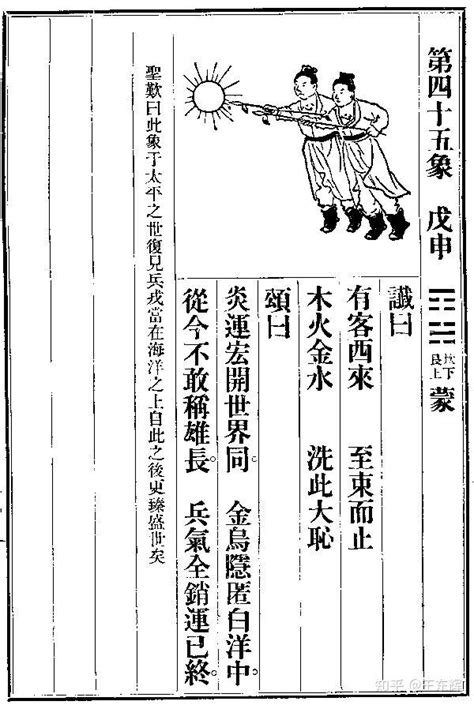 第四十五象 戊申 坎下艮上 蒙
讖曰
有客西來 至東而止
木火金水 洗此大恥
頌曰
炎運宏開世界同。 金烏隱匿白洋中。
從今不敢稱雄長。 兵氣全銷運已終。
聖歎曰此象于太平之世復見兵戎當在海洋之上自此之後更臻盛世矣
知乎 @王亦飛